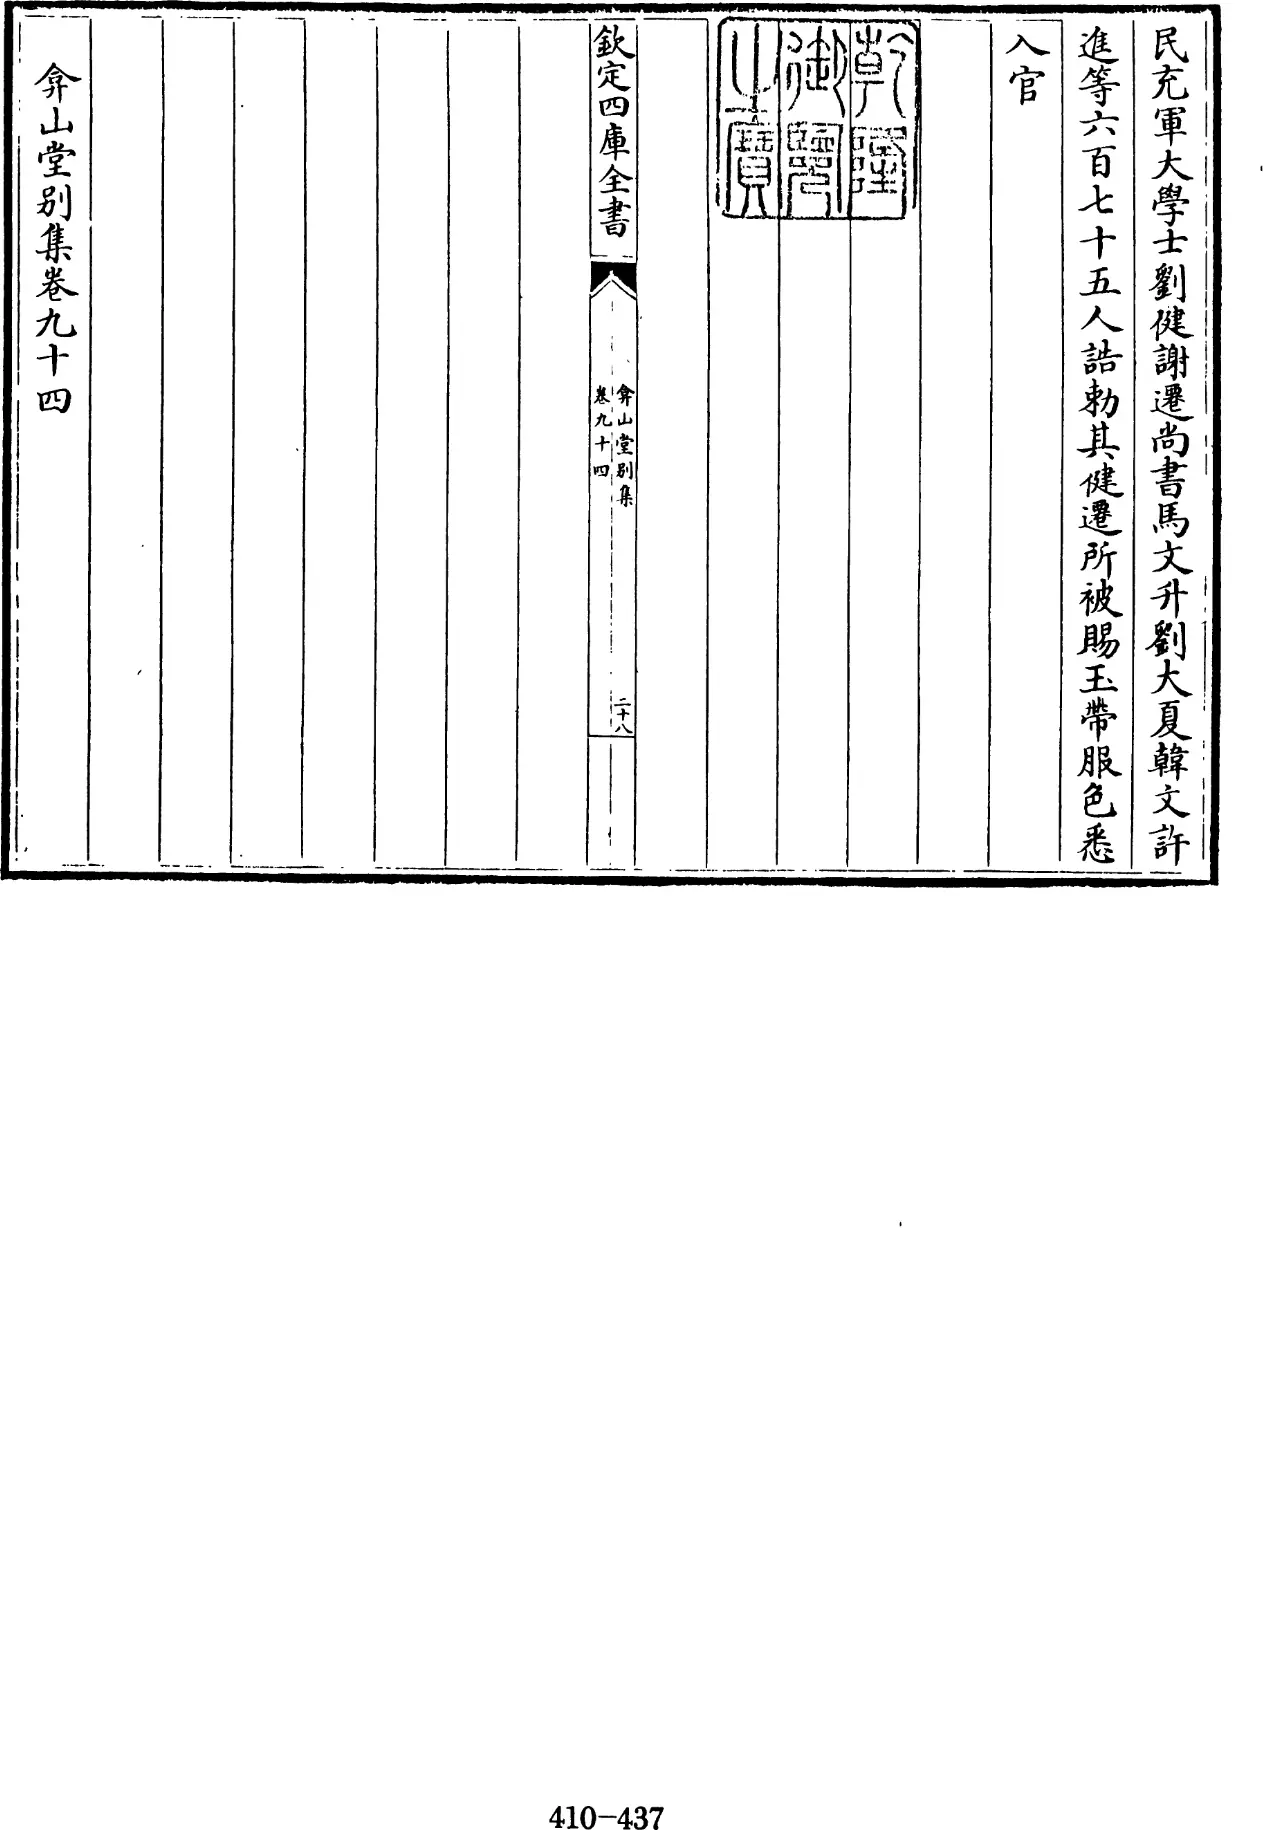 民充軍大學士劉健謝遷尚書馬文升劉大夏韓文許
進等六百七十五人誥勅其健遷所被賜玉帶服色悉
入官
乾隆
御覽
之寶
欽定四庫全書
弇山堂别集
卷九十四
二十八
弇山堂别集卷九十四
410-437